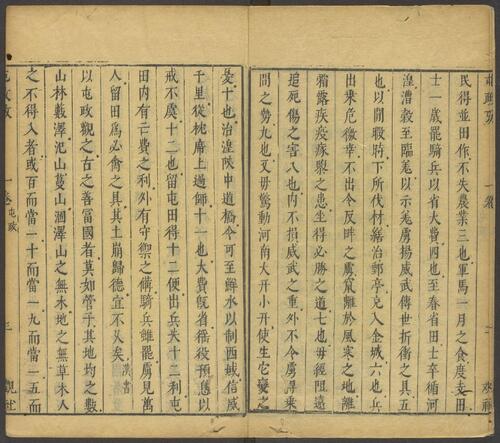 民得並田作不失農業三也軍馬一月之食度支田
士一歲罷騎兵以省大費四也至春省田士卒循河
湟漕穀至臨羌以示羌虜揚威武傳世折衝之具五
也以閒暇時下所伐材繕治郵亭充入金城六也兵
出乗危徼幸不出令反畔之虜竄離於風寒之地離
霜露疾疫瘃墮之患坐得必勝之道七也毋經阻遠
追死傷之害八也內不損威武之重外不令虜得乗
間之勢九也又毋驚動河南大幵小幵使生它變之
憂十也治湟陿中道橋令可至鮮水以制西域信威
千里從枕席上過師十一也大費旣省徭役預息以
戒不虞十二也留屯田得十二便出兵失十二利屯
田內有亡費之利外有守禦之備騎兵雖罷虜見萬
人留田爲必禽之具其土崩歸德宜不久矣 漢書
以屯政觀之古之善富國者莫如管子其地均之數
山林藪澤汜山蔓山涸澤山之無木地之無草木人
之不得入者或百而當一十而當一九而當一五而
一卷 屯政 三 觀社